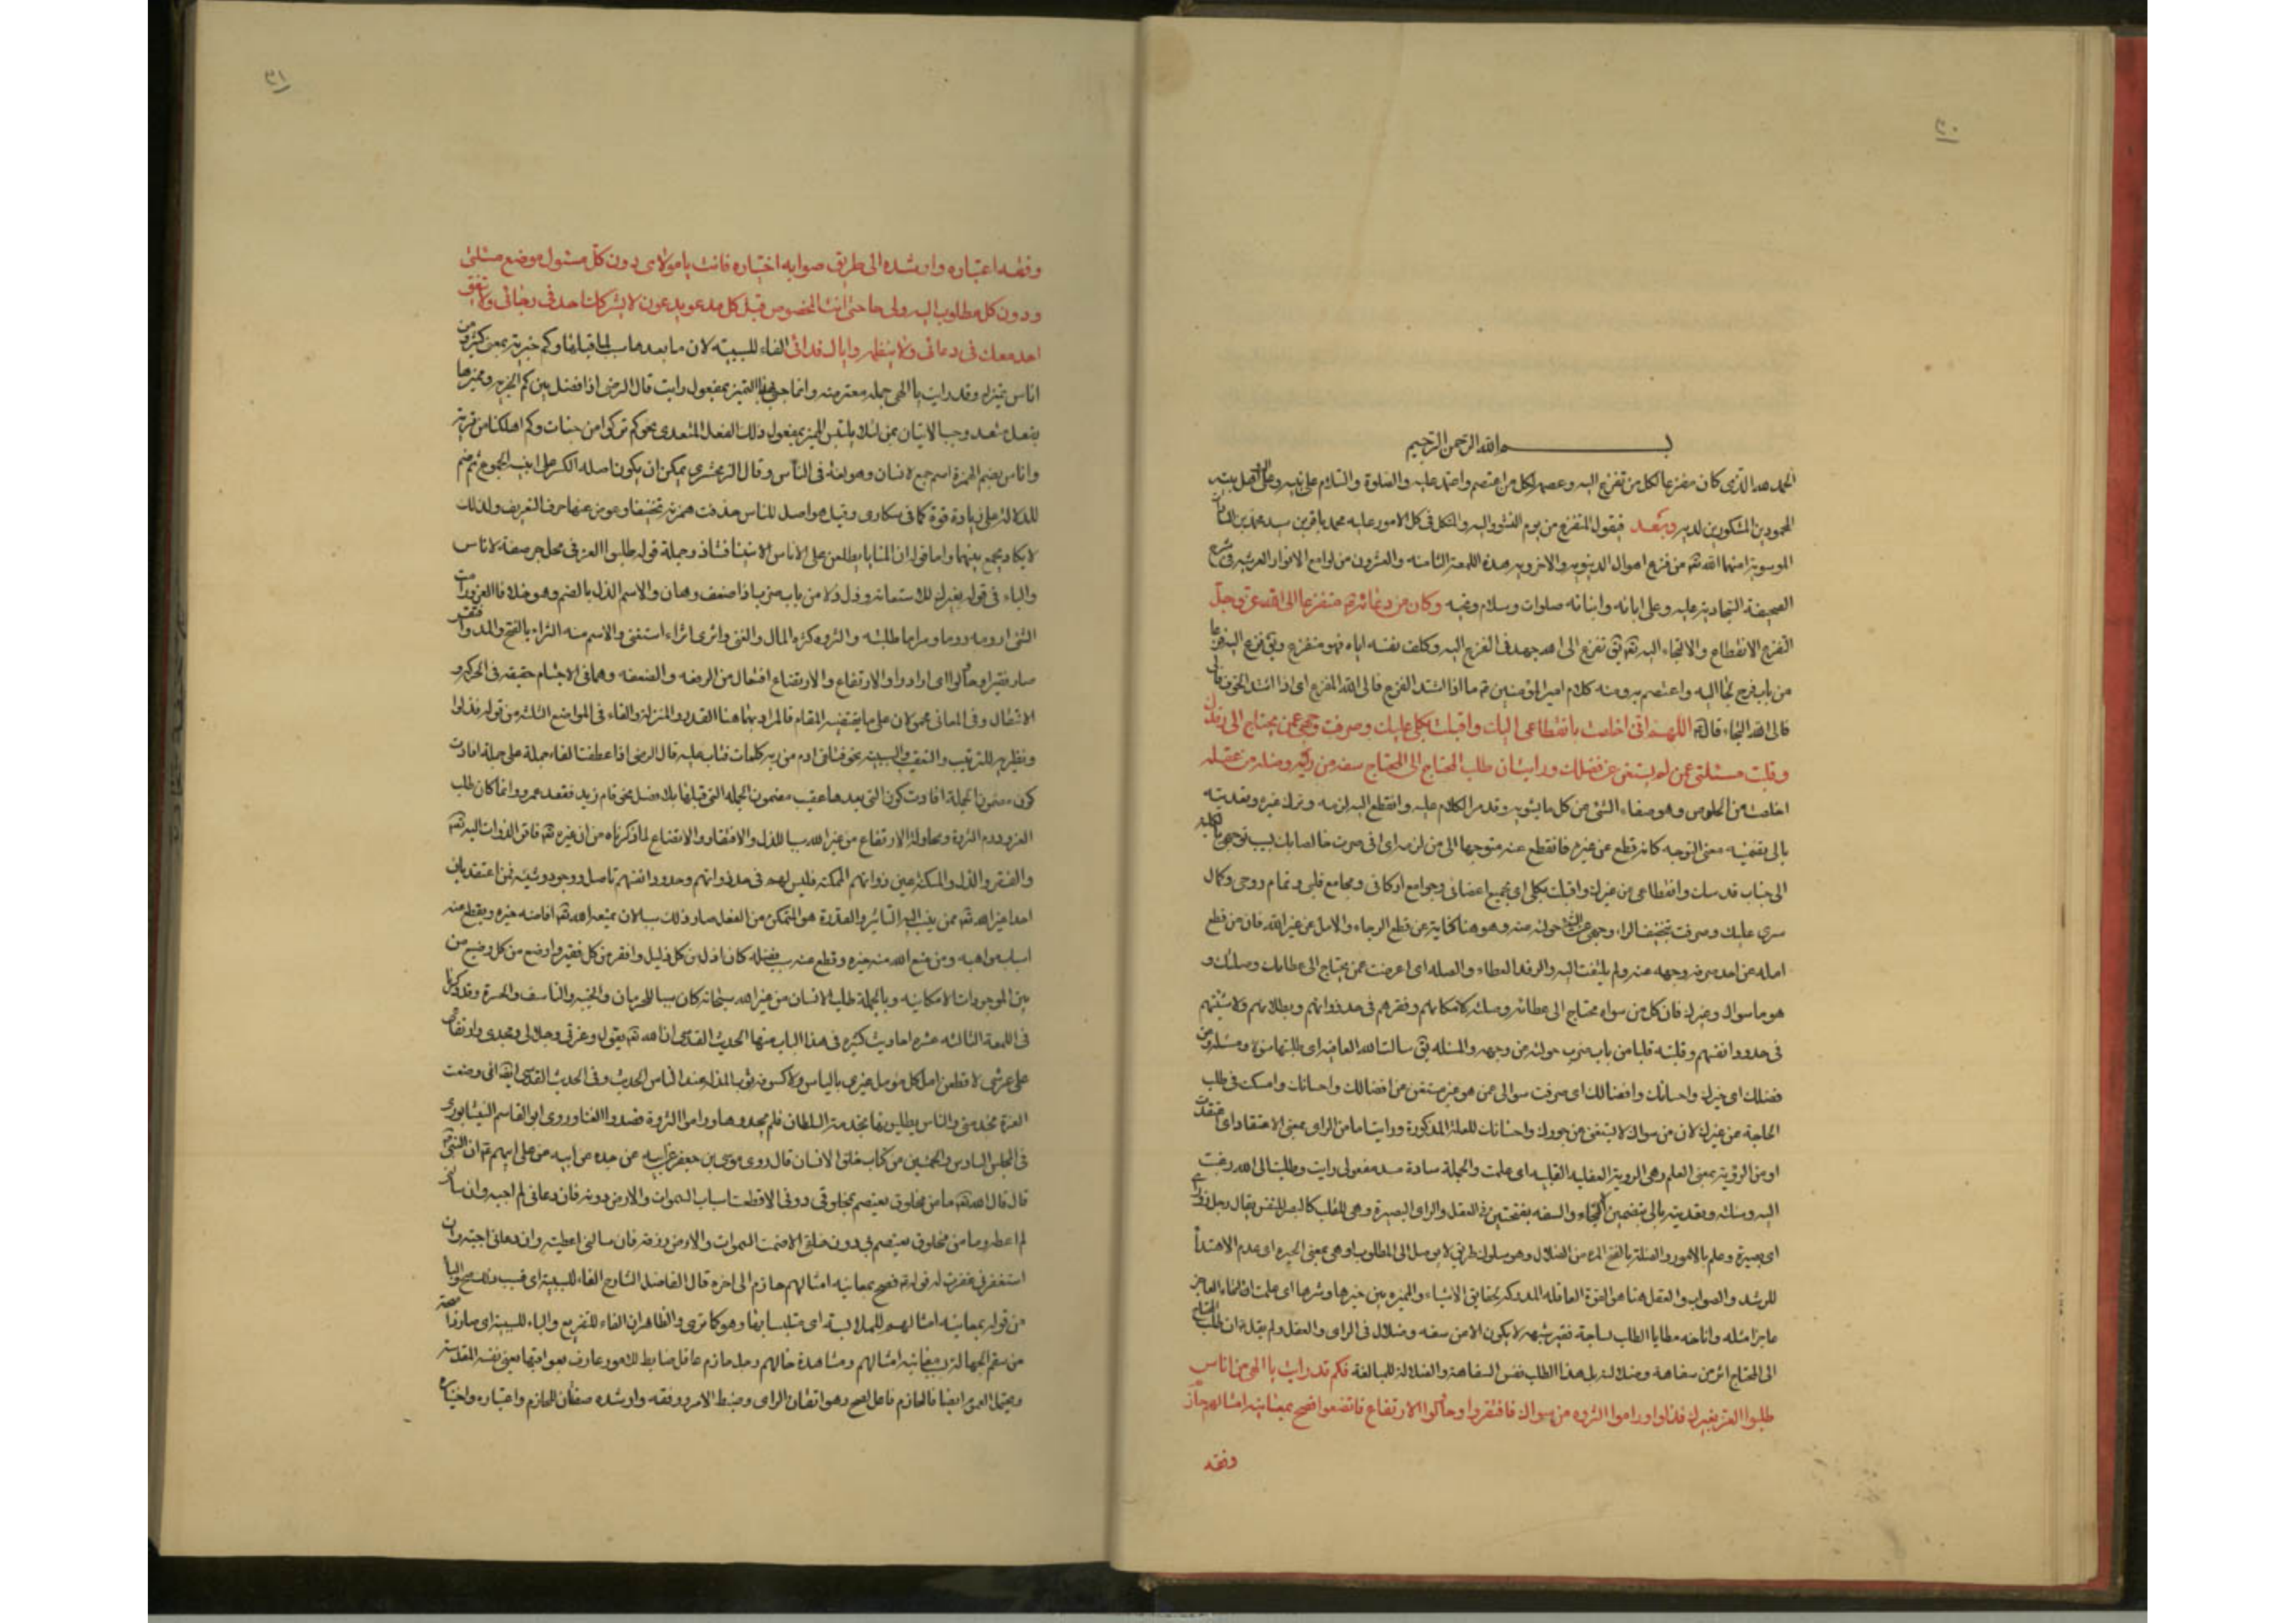 بسم الله الرحمن الرحيم
الحمد لله الذى كان مفزعا لكل من تفزع اليه وعصمة لكل من اعتصم واعتمد عليه والصلوة والسلام على نبيه وعلى آله اهل بيته
المحمودين المشكورين لديه وبعد فيقول المتفزع من يوم النشور اليه والمتكل فى كل الامور عليه محمد باقر بن سيد محمد من السادات
الموسوية امنهما الله تعه من فزع اهوال الدينويه والاخرويه هذه اللمعة الثامنه والعشرون من لوامع الانوار العرشيه فى شرح
الصحيفة السجاديه عليه وعلى ابائه وابنائه صلوات وسلام وكان من دعائه ع متفزعا الى الله عز وجل
الفزع الانقطاع والالتجاء اليه تعه يق تفزع الى الله جهد فى الفزع اليه وكلف نفسه اياه فهو متفزع ويق فزع اليه فزعا
من باب فرح لجا اليه واعتصم به ومنه كلام امير المؤمنين ع فاذا اشتد الفزع فالى الله المفزع اى اذا اشتد الخوف
فالى الله التجاء قال ع اللهم انى اخلصت بانقطاعى اليك واقبلت بكلى عليك وصرفت وجهى عمن يحتاج الى رفدك
وقلبت مسئلتى عمن لم يستغن عن فضلك ورايت ان طلب المحتاج الى المحتاج سفه من رايه وضلة من عقله
اخلصت من الخلوص وهو صفاء الشئ من كل ما يشوبه وقد مر الكلام عليه وانقطع اليه لزمه وترك غيره وتعديته
بالى بتضمينه معنى التوجه كانه قطع عن غيره فانقطع عنه متوجها الى من لزمه اى انى صرت خالصا بك بسبب توجهى بالكليه
الى جناب قدسك وانقطاعى عن غيرك واقبلت بكلى اى بجميع اعضائى وجوامع اركانى ومجامع قلبى وتمام روحى وكمال
سرى عليك وصرفت بتخفيف الراء وجهى عن الشئ حولته عنه وهو هنا كناية عن قطع الرجاء والامل عن غير الله فان من قطع
امله عن احد صرف وجهه عنه ولم يلتفت اليه والرفد العطاء والصله اى اعرضت عمن يحتاج الى عطائك وصلتك و
هو ما سواك وغيرك فان كل من سواه محتاج الى عطائه وصلته لامكانهم وفقرهم فى حد ذواتهم وبطلانهم ولاشيئيتهم
فى حدود انفسهم وقلبته قلبا من باب ضرب حولته عن وجهه والمسئله يق سالت الله العافيه اى طلبتها سؤلا ومسئله
فضلك اى خيرك واحسانك وافضالك اى صرفت سوالى عمن هو غير مستغن عن افضالك واحسانك وامسكت فى طلب
الحاجة عن غيرك لان من سواك لا يستغن عن جودك واحسانك للعلة المذكورة ورايت اما من الراى بمعنى الاعتقاد اى اعتقدت
او من الرؤيه بمعنى العلم وهى الرويه العقليه القلبيه اى علمت والجملة سادة مسد مفعولى رايت وطلبت الى الله رغبت
اليه وسئلته وتعديته بالى بتضمين التجاء والسفه بفتحتين فى العقل والراى البصيرة وهى للقلب كالبصر للنفس يقال رجل ذو راى
اى بصيرة وعلم بالامور والضلة بالفتح المره من الضلال وهو سلوك طريق لا يوصل الى المطلوب او هى بمعنى الحيره اى عدم الاهتداء
للرشد والصواب والعقل هنا هو القوة العاقله المدركه بحقايق الاشياء والمميزه بين خيرها وشرها اى علمت ان التجاء العاجز
عاجزا مثله واناخه مطايا الطلب لساحة فقير شبهه لا يكون الا من سفه وضلال فى الراى والعقل ولم يقل ع ان طلب المحتاج
الى المحتاج اثر من سفاهة وضلالة بل هذا الطلب نفس السفاهة والضلالة للمبالغة فكم قد رايت يا الهى من اناس
طلبوا العز بغيرك فذلوا وراموا الثروه من سواك فافتقروا وحاولوا الارتفاع فاتضعوا فصح بمعاينة امثالهم حازم
وفقه
وفقه اعتباره وارشده الى طريق صوابه اختياره فانت يا مولاى دون كل مسئول موضع مسئلتى
ودون كل مطلوب اليه ولى حاجتى انت المخصوص قبل كل مدعو بدعوتى لا يشركك احد فى رجائى ولا يتفق
احد معك فى دعائى ولا ينظمه واياك ندائى الفاء للسببيه لان ما بعدها سبب لما قبلها وكم خبريه بمعنى كثير ومن
اناس مميزه وقد رايت يا الهى جمله معترضه وانما جئ بالتميز بمفعول رايت قال الرضى اذا فصل بين كم الخبريه ومميزها
بفعل متعد وجب الاتيان بمن لئلا يلتبس المميز بمفعول ذلك الفعل المتعدى نحو كم تركوا من جنات وكم اهلكنا من قرية
واناس بضم الهمزة اسم جمع لانسان وهو لغة فى الناس وقال الزمخشرى يمكن ان يكون اصله الكسر على ابنيه الجموع ثم ضم
للدلالة على زيادة قوة كما فى سكارى وقيل هو اصل للناس حذفت همزته تخفيفا وعوض عنها حرف التعريف ولذلك
لا يكاد يجمع بينهما واما قوله ان المنايا يطلعن على الاناس الامنينا فشاذ وجملة قوله طلبوا العز فى محل جر صفة لاناس
والباء فى قوله بغيرك للاستعانه وذل ذلا من باب ضرب اذا ضعف وهان والاسم الذل بالضم وهو خلاف العز ورمت
الشئ ارومه روما ومراما طلبته والثروه كثرة المال والغنى واثرى اثراء استغنى والاسم منه الثراء بالفتح والمد وافتقر
صار فقيرا وحاولوا اى ارادوا والارتفاع والاتضاع افتعال من الرفعه والضعه وهما فى الاجسام حقيقه فى الحركه و
الانتقال وفى المعانى محمولان على ما يقتضيه المقام فالمراد بهما هنا القدر والمنزلة والفاء فى المواضع الثلث من قوله فذلوا
ونظيريه للترتيب والتعقيب والسببيه نحو فتلقى ادم من ربه كلمات فتاب عليه قال الرضى اذا عطفت الفاء جملة على جملة افادت
كون مضمون الجملة افادت كون التى بعدها عقيب مضمون الجمله التى قبلها بلا فصل نحو قام زيد فقعد عمرو وانما كان طلب
العز وروم الثروة ومحاولة الارتفاع من غير الله سببا للذل والافتقار والاتضاع لما ذكرناه من ان غيره تعه فاقر الذوات اليه تعه
والفقر والذل والمسكنه عين ذواتهم الممكنه فليس لهم فى حد ذواتهم وحدود انفسهم تاصل ووجود وشيئيه فمن اعتقد بان
احدا غير الله تعه ممن ينسب اليه التاثير والقدرة هو المتمكن من الفعل صار ذلك سببا لان يمنعه الله تعه افاضة خيره ويقطع عنه
اسباب مواهبه ومن منع الله منه خيره وقطع عنه سبب فضله كان اذل من كل ذليل وافقر من كل فقير واوضع من كل وضيع من
بين الموجودات الامكانيه وبالجملة طلب الانسان من غير الله سبحانه كان سببا للحرمان والخيبه والتاسف والحسرة وقد ذكرنا
فى اللمعة الثالثه عشره احاديث كثيره فى هذا الباب منها الحديث القدسى ان الله تعه يقول وعزتى وجلالى ومجدى وارتفاعى
على عرشى لاقطعن امل كل مؤمل غيرى بالياس ولاكسونه ثوب المذله عند الناس الحديث وفى الحديث القدسى ايضا انى وضعت
العزة بخدمتى والناس يطلبونها بخدمة السلطان فلم يجدوها وراموا الثروة فضدوا الغنا وروى ابو القاسم النيشابورى
فى المجلس السادس والخمسين من كتاب خلق الانسان قال روى موسى بن جعفر عن ابيه عن جده عن ابيه عن على ابيهم ع ان النبى ص
قال قال الله تعه ما من مخلوق يعتصم بمخلوقى دونى الا قطعت اسباب السموات والارض دونه فان دعانى لم اجبه وان سالنى
لم اعطه وما من مخلوق يعتصم بى دون خلقى الا ضمنت السموات والارض رزقه فان سالنى اعطيته وان دعانى اجبته وان
استغفرنى غفرت له قوله ع فصح بمعاينه امثالهم حازم الى اخره قال الفاضل الشارح الفاء للسببيه اى فبسبب ذلك صح والباء
من قوله بمعاينه امثالهم للملابسة اى متلبسا بها وهو كما ترى والظاهر ان الفاء للتفريع والباء للسببيه اى صار ذا صحة
من سقم الجهالة بسبب معاينه امثالهم ومشاهدة حالهم رجل حازم عاقل ضابط للامور عارف بعواقبها يعنى نفسه المقدسه
ويحتمل العموم ايضا فالحازم فاعل لصح وهو اتقان الراى وضبط الامر ووفقه وارشده صفتان للحازم واعتباره واختياره